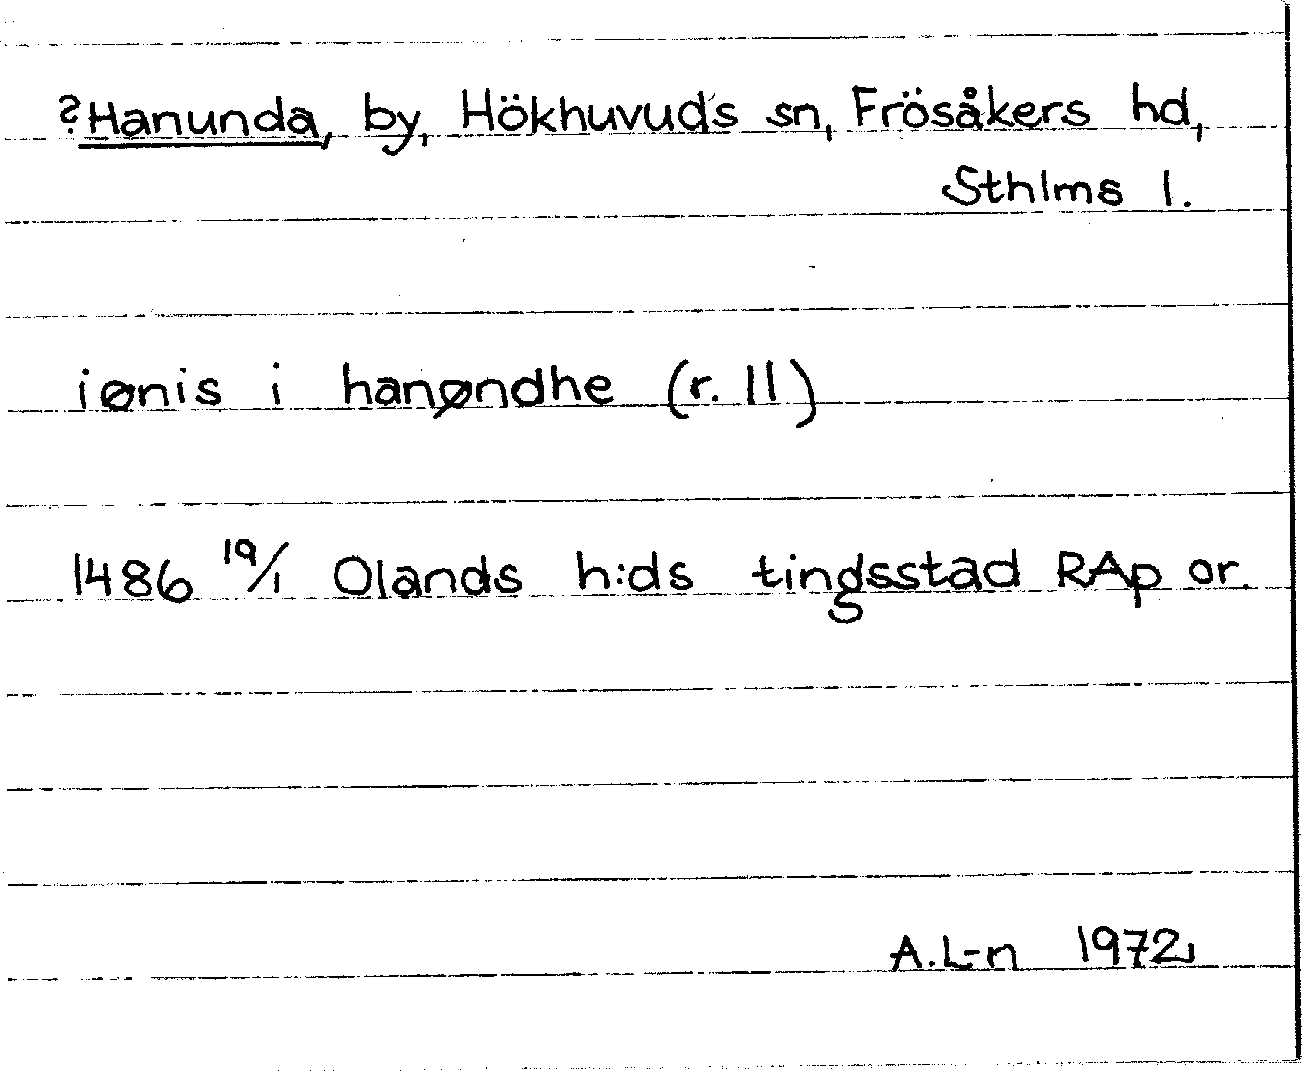 ?Hanunda, by, Hökhuvuds sn, Frösåkers hd,
Sthlms l.
iønis i hanøndhe (r. 11)
1486 19/1 Olands h:ds tingsstad RAp or.
A.L-n 1972